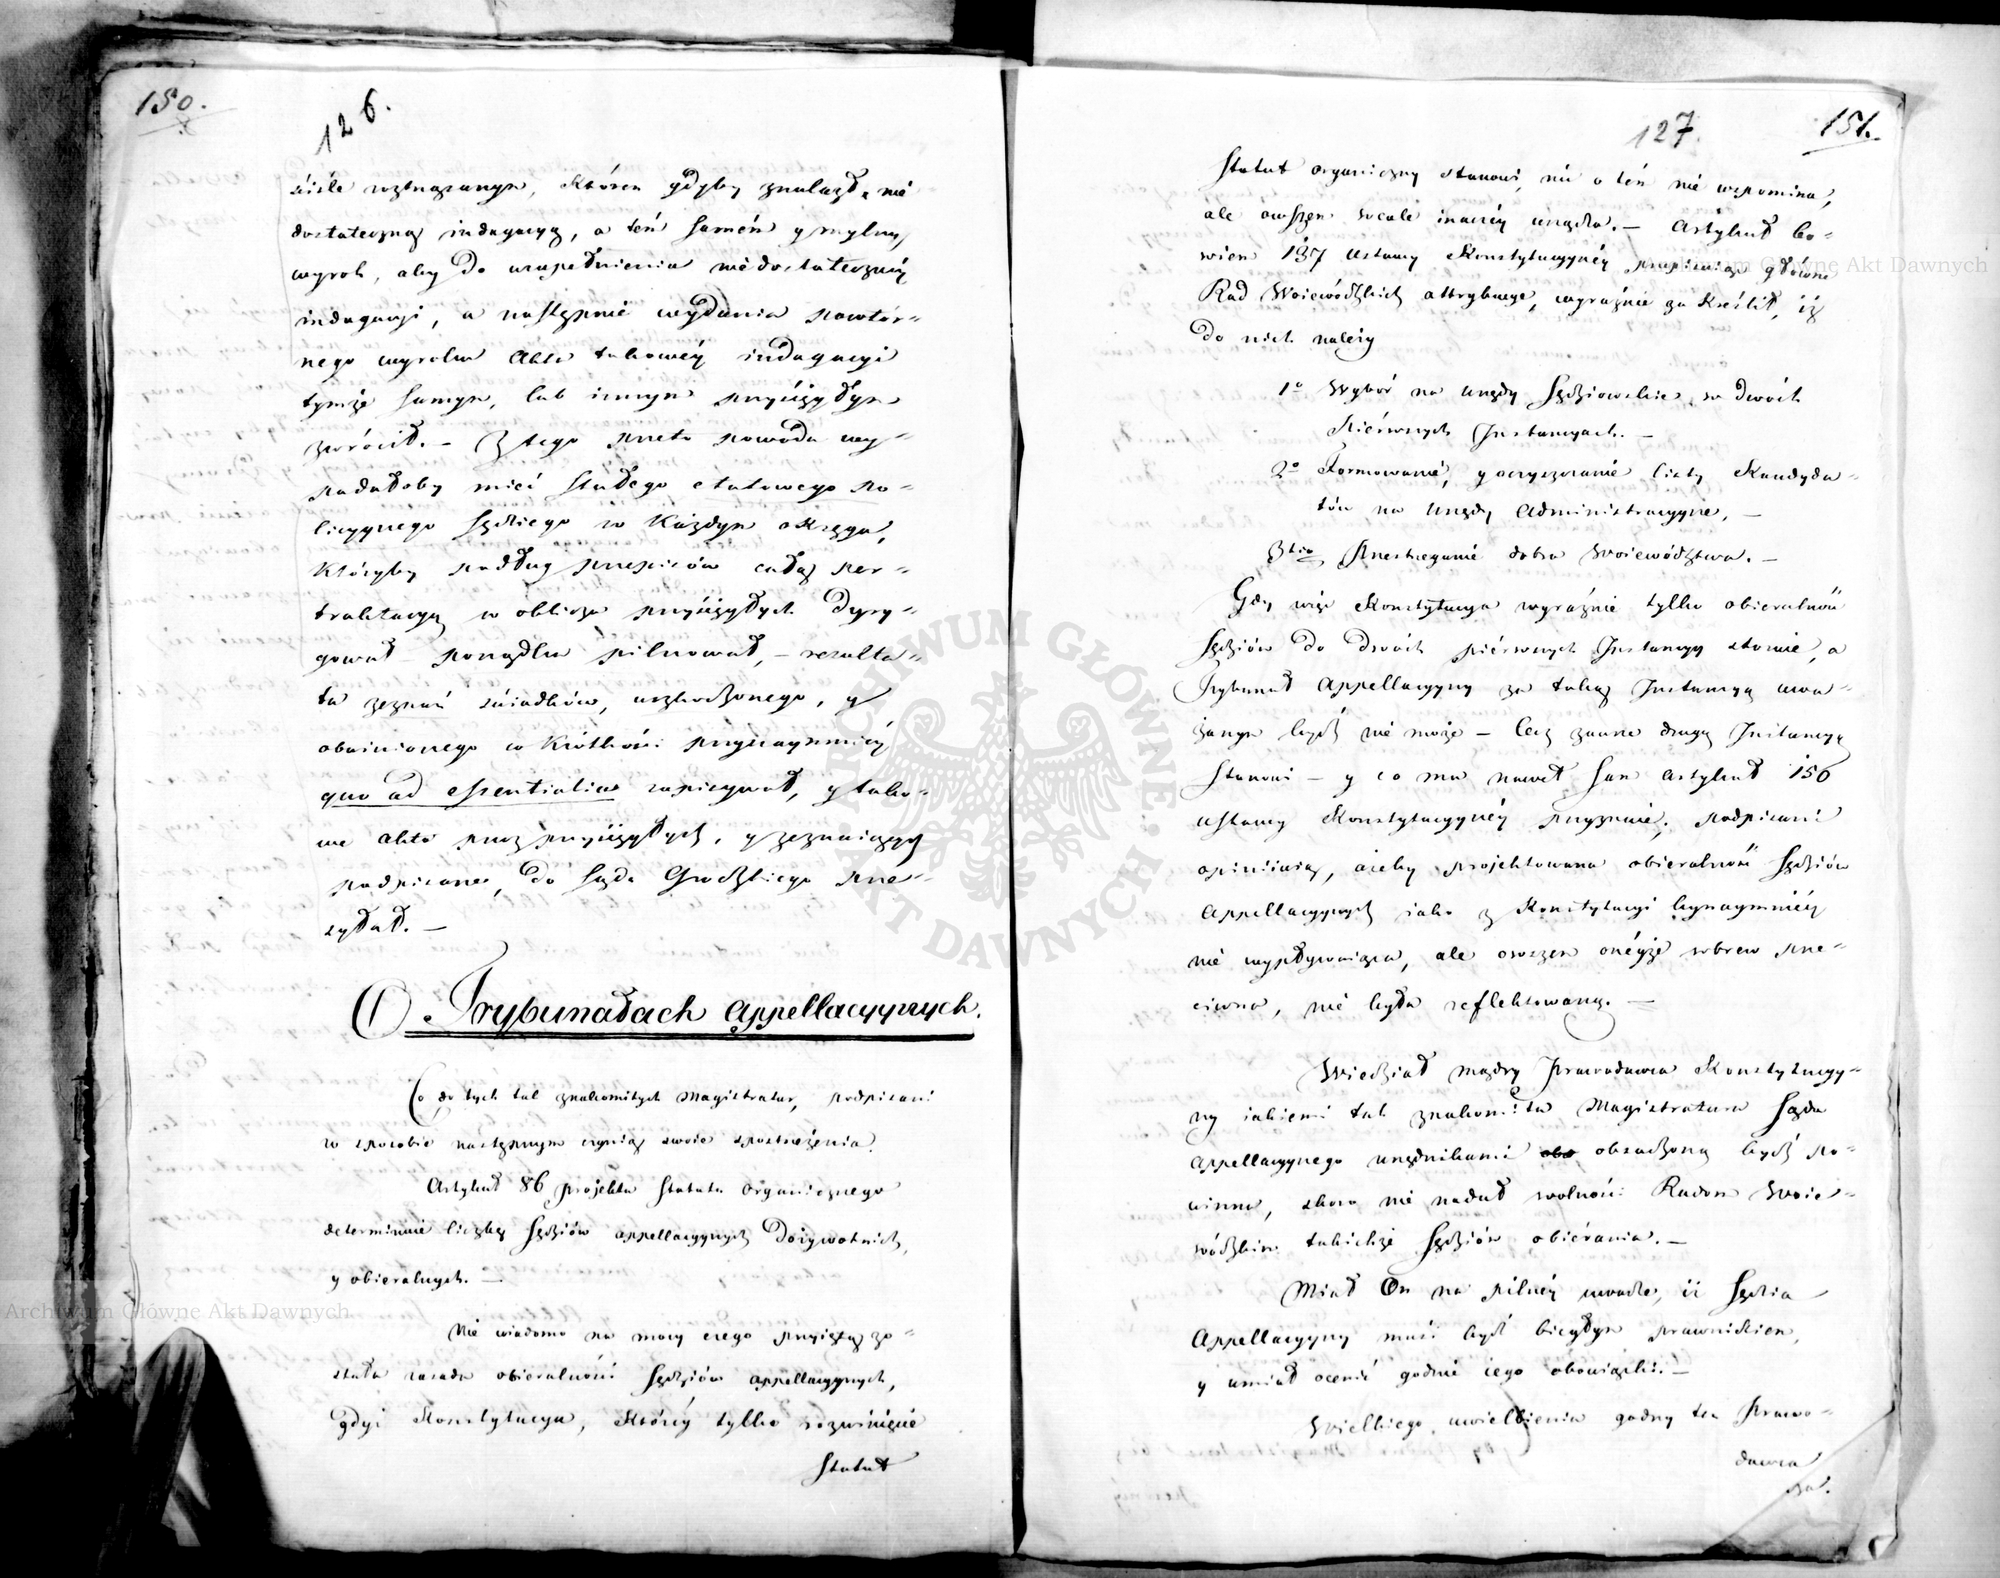 150.
126.
ściśle roztrząsanym, któren gdyby znalazł nie
dostateczną indagacyą, a tem samem y mylny
wyrok, aby do uzupełnienia niedostateczney
indagacyi, a następnie wydania powtór-
nego wyroku akta takowéy indagacyi
tymże samym, lub innym przysięgłym
zwrócił. – Z tego przeto powodu wy-
padałoby mieć stałego etatowego po-
licyynego Sędziego w każdym okręgu,
któryby podług przepisów całą per-
traktacyą w obliczu przysięgłych dyry-
gował porządku pilnował, – rezulta-
ta zeznań świadków, uszkodzonego, y
obwinionego w krótkości przynaymniéy
quo ad essentialia zapisywał, y tako-
we akta przez przysięgłych, y zeznaiących
podpisane, do Sądu Grodzkiego prze-
syłał. –
O Trybunałach Appellacyynych.
Co do tych tak znakomitych Magistratur, podpisani
w sposobie następnym czynią swoie spostrzeżenia.
Artykuł 86 projektu Statutu Organicznego
determinuie liczbę Sędziów appellacyynych Dożywotnich,
y obieralnych. –
Nie wiadomo na mocy czego przyiętą zo-
stała zasada obieralności Sędziów appellacyynych,
gdyż Konstytucya, któréy tylko rozwinięcie
Statut
127.
151.
Statut organiczny stanowi, nic o tem nie wspomina,
ale owszem wcale inaczéy urządza. – Artykuł bo-
wiem 137 Ustawy Konstytucyynéy przepisuiąc główne
Rad Woiewódzkich attrybucye, wyraźnie zakreślił, iż
do nich należy
1o Wybór na urzędy Sędziowskie w dwóch
Pierwszych Instancyach. –
2o Formowanie, y oczyszczanie listy Kandyda-
tów na urzędy Administracyyne, –
3tio Przestrzeganie dobra Woiewództwa. –
Gdy więc Konstytucya wyraźnie tylko obieralność
Sędziów do dwóch pierwszych Instancyy stosuie, a
Trybunał Appellacyyny za taką Instancyą uwa-
żanym bydź nie może – lecz zawsze drugą Instancyą
stanowi – y co mu nawet sam artykuł 150
Ustawy Konstytucyynéy przyznaie; podpisani
opiniuią, ażeby projektowana obieralność Sędziów
Appellacyynych iako z Konstytucyi bynaymniéy
nie wypływaiąca, ale owszem onéyże wbrew prze-
ciwna, nie była reflektowaną. –
Wiedział mądry Prawodawca Konstytucyy-
ny iakiemi tak znakomita Magistratura Sądu
Appellacyynego urzędnikami obsadzoną bydź po-
winna, skoro nie nadał wolności Radom Woie-
wódzkim takichże Sędziów obiérania. –
Miał On na pilnéy uwadze, iż Sędzia
Appellacyyny musi bydź biegłym prawnikiem,
y umiał ocenić godnie iego obowiązki. –
Wielkiego uwielbienia godny ten Prawo-
dawca